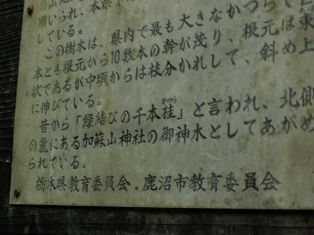 用いられ、本県で
している。
この樹木は、県内で最も大きなかつらで
本とも根元から10数本の幹が茂り、根元は東
状であるが中頃からは枝分かれして、斜め上
に伸びている。
昔から「縁結びの千本桂」と言われ、北側
かつら
の崖にある加蘇山神社の御神木としてあがめ
られている。
栃木県教育委員会・鹿沼市教育委員会